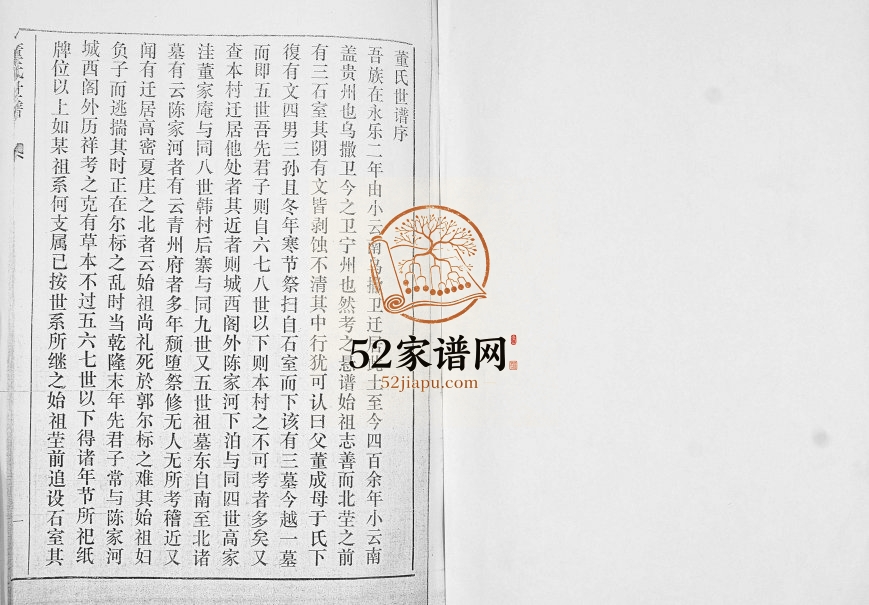 董氏世谱序
吾族在永乐二年由小云南乌撒卫迁居此土至今四百余年小云南
盖贵州也乌撒卫今之卫宁州也然考之悬谱始祖志善而北茔之前
有三石室其阴有文皆剥蚀不清其中行犹可认曰父董成母于氏下
復有文四男三孙且冬年寒节祭扫自石室而下该有三墓今越一墓
而即五世吾先君子则自六七八世以下则本村之不可考者多矣又
查本村迁居他处者其近者则城西阁外陈家河下泊与同四世高家
洼董家庵与同八世韩村后寨与同九世又五世祖墓东自南至北诸
墓有云陈家河者有云青州府者多年颓堕祭修无人无所考稽近又
闻有迁居高密夏庄之北者云始祖尚礼死於郭尔标之难其始祖妇
负子而逃揣其时正在尔标之乱时当乾隆末年先君子常与陈家河
城西阁外历祥考之克有草本不过五六七世以下得诸年节所祀纸
牌位以上如某祖系何支属已按世系所继之始祖茔前追设石室其
董氏世谱
52家谱网
52jiapu.com